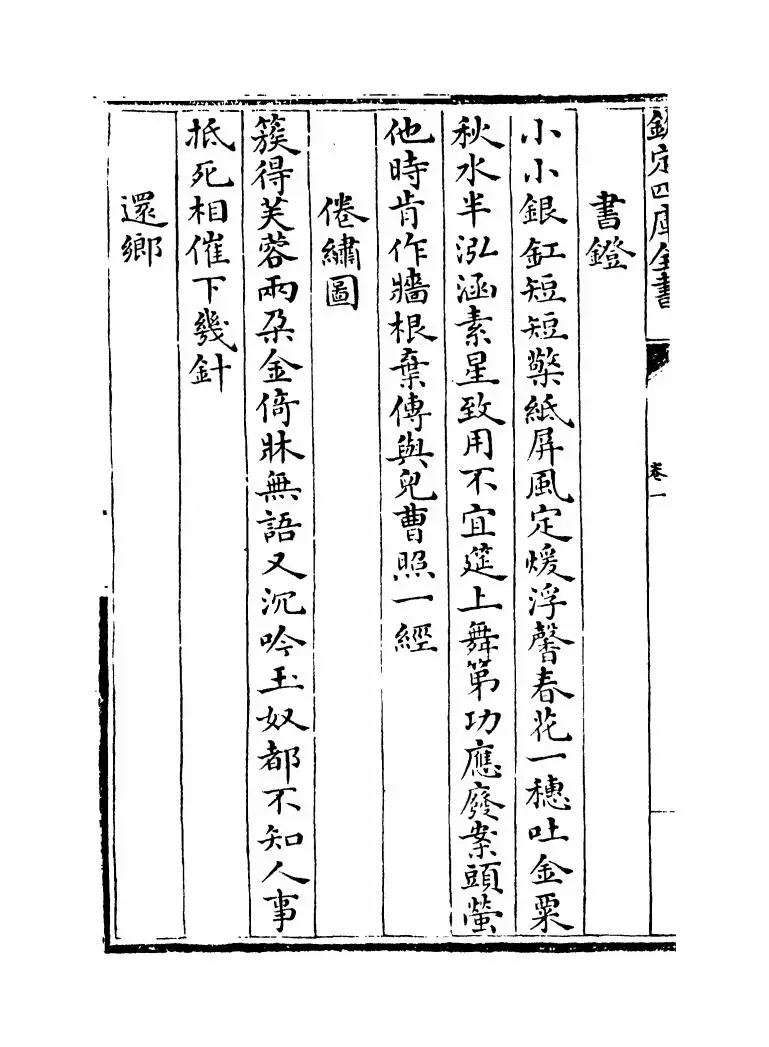 欽定四庫全書
卷一
書鐙
小小銀缸短短檠紙屏風定煖浮馨春花一穗吐金粟
秋水半泓涵素星致用不宜筵上舞第功應廢案頭螢
他時肯作牆根棄傳與兒曹照一經
倦繡圖
簇得芙蓉兩朶金倚牀無語又沉吟玉奴都不知人事
抵死相催下幾針
還鄉